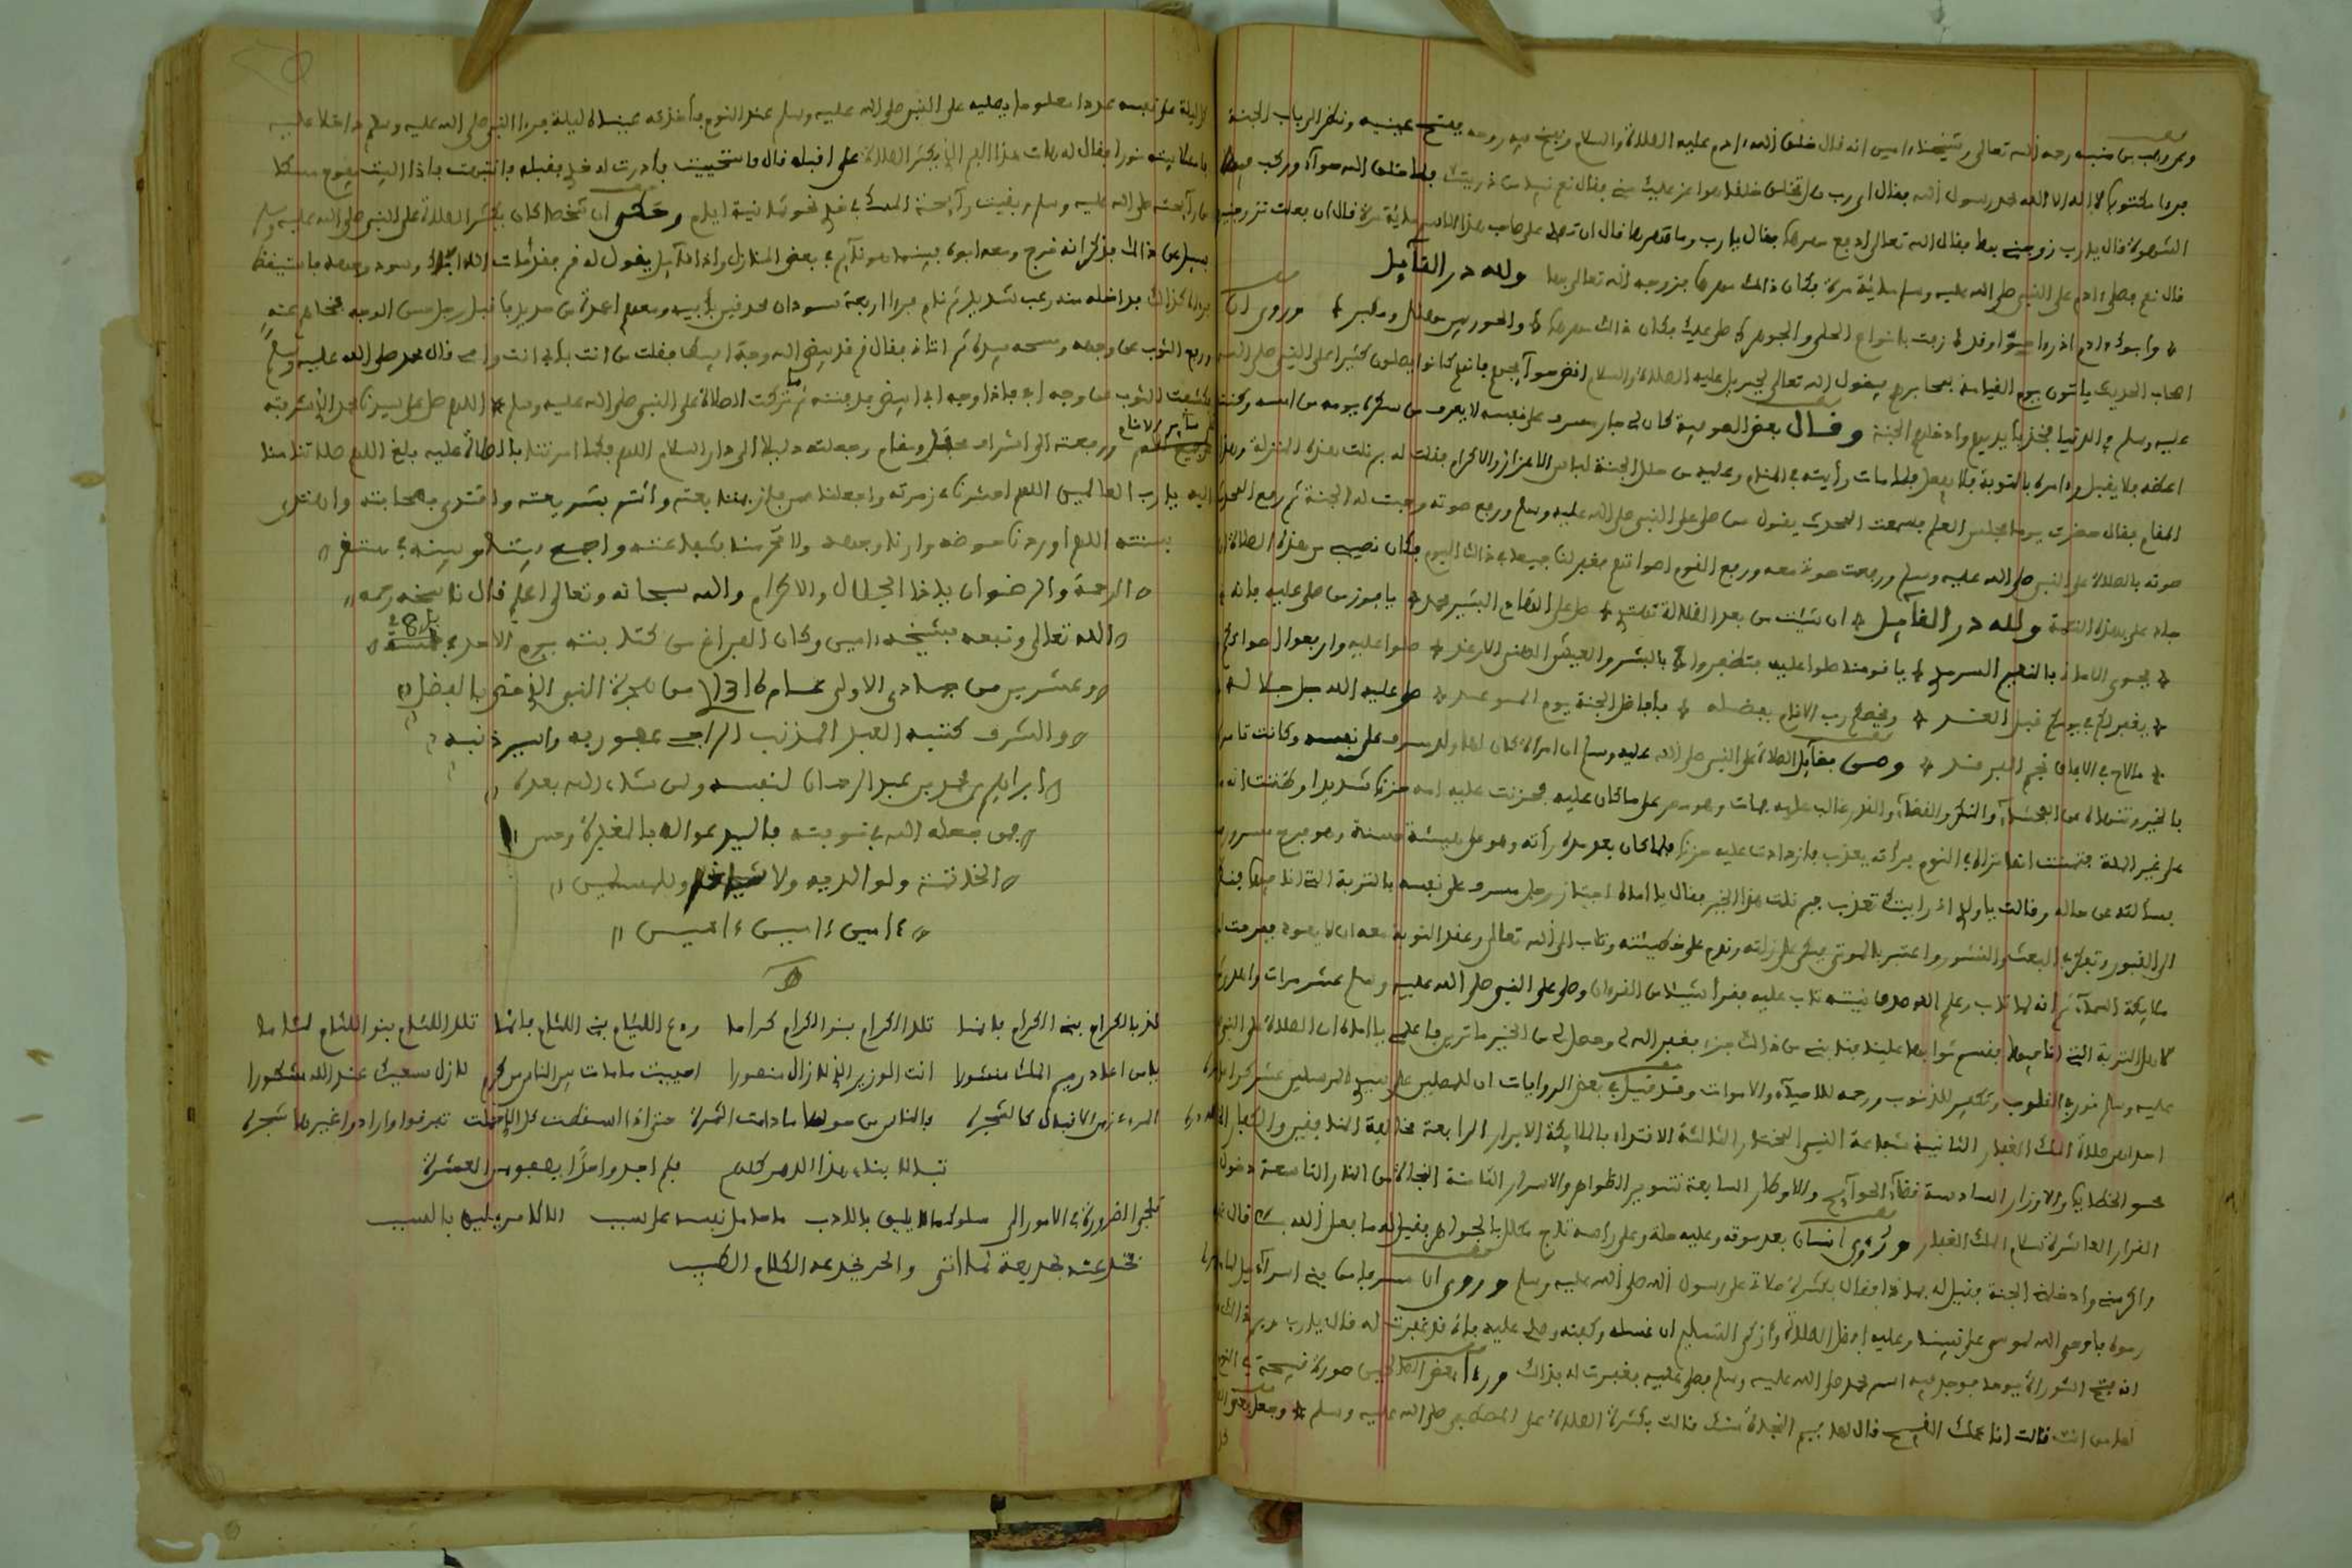 وعن وهب بن منبه رحمه الله تعالى وشيخنا ءامين انه قال لما خلق الله ءادم عليه الصلاة والسلام ونفخ فيه روحه ففتح عينيه ونظر الى باب الجنة
فرءا مكتوبا لا اله الا الله محمد رسول الله فقال اي رب هل تخلق خلقا هو اعز عليك مني فقال نعم نبيا من ذريتك فلما خلق الله حوآء وركب فيه
الشهوة قال يا رب زوجني بها فقال الله تعالى ادفع مهرها فقال يا رب وما مهرها قال ان تصلي على صاحب هذا الاسم مائة مرة قال ان فعلت تزوجنيها
قال نعم فصلى ءادم على النبي صلى الله عليه وسلم مائة مرة فكان ذالك مهرها فزوجه الله تعالى بها ولله در القآئل
وابوك ءادم اذ رءا حوّا وقد زينت بانواع الحلي والجوهر صلى عليك فكان ذاك مهرها والحور بين مهلل ومكبر وروي ان
اصحاب الحديث ياتون يوم القيامة بمحابرهم فيقول الله تعالى لجبريل عليه الصلاة والسلام اقض حوآئجهم فانهم كانوا يصلون كثيرا على النبي صلى الله
عليه وسلم في الدنيا فخذ بايديهم وادخلهم الجنة وقال بعض الصوفية كان لي جار مسرف على نفسه لا يعرف من سكره يومه من امسه وكنت
اعظه فلا يقبل وءامره بالتوبة فلا يفعل فلما مات رأيته في المنام وعليه من حلل الجنة لباس الاعزاز والاكرام فقلت له بم نلت هذه المنزلة وهذا
المقام فقال حضرت يوما مجلس العلم فسمعت المحدث يقول من صلى على النبي صلى الله عليه وسلم ورفع صوته وجبت له الجنة ثم رفع المحدث
صوته بالصلاة على النبي صلى الله عليه وسلم ورفعت صوتي معه ورفع القوم اصواتهم فغفر لنا جميعا في ذالك اليوم فكان نصيبي من هذه الصلاة ان
جاد علي بهذه النعمة ولله در القآئل ان شئت من بعد الضلالة تهتدي صل على الهادي البشير محمد يا فوز من صلى عليه فانه
يحوي الاماني بالنعيم السرمدي يا قومنا صلوا عليه لتظفروا بالبشر والعيش الهني الارغد صلوا عليه وارفعوا اصواتكم
يغفر لكم في يومكم قبل الغد ويخصكم رب الانام بفضله بافاضل الجنة يوم الموعد صلى عليه الله جل جلاله
ما لاح في الافاق نجم الفرقد ومن فضآئل الصلاة على النبي صلى الله عليه وسلم ان امرأة كان لها ولد مسرف على نفسه وكانت تامره
بالخير وتنهاه عن الفحشآء والمنكر والقضآء والقدر غالب عليه فمات وهو مصر على ما كان عليه فحزنت عليه امه حزنا شديدا وظنت انه
على غير الملة فتمنت انها تراه في النوم فرأته يعذب فازدادت عليه حزنا فلما كان بعد مدة رأته وهو على هيئة حسنة وهو فرح مسرور
فسألته عن حاله وقالت يا ولدي اني رايتك تعذب فبم نلت هذا الخير فقال يا اماه اجتاز رجل مسرف على نفسه بالتربة التي انا فيها فنظر
الى القبور وتفكر في البعث والنشور واعتبر بالموتى فبكى على زلته وندم على خطيئته وتاب الى الله تعالى وعقد التوبة معه ان لا يعود ففرحت
ملآئكة السمآء ثم انه لما تاب وعلم الله صدق نيته تاب عليه فقرأ شيئا من القرءان وصلى على النبي صلى الله عليه وسلم عشر مرات واهدى
لاهل التربة التي انا فيها فقسم ثوابها علينا فنابني من ذالك جزء فغفر الله لي وحصل لي من الخير ما ترين فاعلمي يا اماه ان الصلاة على النبي
عليه وسلم نور في القلوب وتكفير للذنوب ورحمة للاحيآء والاموات وقد قيل في بعض الروايات ان للمصلين على سيد المرسلين عشر كرامات
احداهن صلاة الملك الغفار الثانية شفاعة النبي المختار الثالثة الاقتداء بالملآئكة الابرار الرابعة مخالفة المنافقين والكفار
محو الخطايا والاوزار السادسة قضآء الحوآئج والاوطار السابعة تنوير الظواهر والاسرار الثامنة النجاة من النار التاسعة دخول
القرار العاشرة سلام الملك الغفار ورؤي انسان بعد موته وعليه حلة وعلى رأسه تاج مكلل بالجواهر فقيل له ما فعل الله بك قال غفر
واكرمني وادخلني الجنة فقيل له بماذا فقال بكثرة صلاة على رسول الله صلى الله عليه وسلم وروي ان مسرفا من بني اسرآئيل لما مات
رموه فاوحى الله لموسى على نبينا وعليه افضل الصلاة وأزكى التسليم ان غسله وكفنه وصلي عليه فاني قد غفرت له قال يا رب وبم ذالك
انه فتح التوراة يوما فوجد فيه اسم محمد صلى الله عليه وسلم فصلى عليه فغفرت له بذالك ورءا بعض الصالحين صورة قبيحة في النوم
لها من انت قالت انا عملك القبيح قال لها فبم النجاة منك قالت بكثرة الصلاة على المصطفى صلى الله عليه وسلم وجعل بعض
كل ليلة على نفسه عددا معلوما يصليه على النبي صلى الله عليه وسلم عند النوم فأخذته عينه ليلة فرءا النبي صلى الله عليه وسلم داخلا عليه
فامتلأ بيته نورا فقال له هات هذا الفم الذي يكثر الصلاة علي اقبله قال فاستحييت فأدرت له خدي فقبله فانتبهت فاذا البيت يفوح مسكا
من رآئحته صلى الله عليه وسلم وبقيت رآئحة المسك في خدي نحو ثمانية ايام وحكي ان شخصا كان يكثر الصلاة على النبي صلى الله عليه وسلم
فسئل عن ذالك فذكر انه خرج ومعه ابوه فبينما هو نآئم في بعض المنازل واذا قآئل يقول له قم فقد مات والله ابوك وسود وجهه فاستيقظ
فرءاه كذالك فداخله منه رعب شديد ثم نام فرءا اربعة سودان محدقين بأبيه ومعهم اعمدة من حديد فاقبل رجل حسن الوجه فنحاهم عنه
ورفع الثوب عن وجهه ومسحه بيده ثم اتاني فقال قم قد بيض الله وجه ابيك فقلت من انت بأبي انت وامي قال محمد صلى الله عليه وسلم
فكشفت الثوب عن وجه ابي فاذا وجه ابي ابيض فدفنته ثم ما تركت الصلاة على النبي صلى الله عليه وسلم اللهم صل على سيدنا محمد الذي شرفته
على سآئر الانام
ورفعته الى اشرف محل ومقام وجعلته دليلا الى دار السلام اللهم فكما امرتنا بالصلاة عليه بلغ اللهم صلاتنا منا
اليه يا رب العالمين اللهم احشرنا في زمرته واجعلنا ممن فاز بمتابعته وأتم بشريعته واقتدى بصحابته واهتدى
بسنته اللهم اوردنا حوضه وارنا وجهه ولا تحرمنا شفاعته واجمع بيننا وبينه في مستقر
الرحمة والرضوان ياذا الجلال والاكرام والله سبحانه وتعالى اعلم قال ناسخه رحمه
الله تعالى ونفعه بشيخه ءامين وكان الفراغ من كتابته يوم الاحد في
8
وعشرين من جمادي الاولى عام من هجرة النبي الذي حض بالفضل
والشرف كتبه العبد المذنب الراجي عفو ربه واسير ذنبه
ابراهيم بن محمد بن عبد الرحمان لنفسه ولمن شاء الله بعده
ممن جعله الله في نوبته فاليدع الله بالمغفرة وحسن
الخاتمة ولوالديه ولاشياخه وللمسلمين
ءامين ءامين ءامين
لذ بالكرام بني الكرام فانما تلد الكرام بنو الكرام كراما ودع اللئيام بني اللئام فانما تلد اللئام بنو اللئام لئاما
يا من اعاد رميم الملك منشورا انت الوزير الذي لا زال منصورا احييت ما مات بين الناس من كرم لا زال سعيك عند الله مشكورا
المرء زمن الاقبال كالشجرة والناس من حولها ما دامت الثمرة حتى اذا اسقطت كل الذي حملت تفرقوا وارادوا غيرها شجرة
تبا لابناء هذا الدهر كلهم فلم اجد واحدا يصفو من العشرة
تلجي الضرورة في الامور الى سلوك ما لا يليق بالادب ما حامل نفسه على سبب الا لامر يليه بالسبب
تخدعنه خديعة كلانثى والحر يخدعه الكلام الطيب